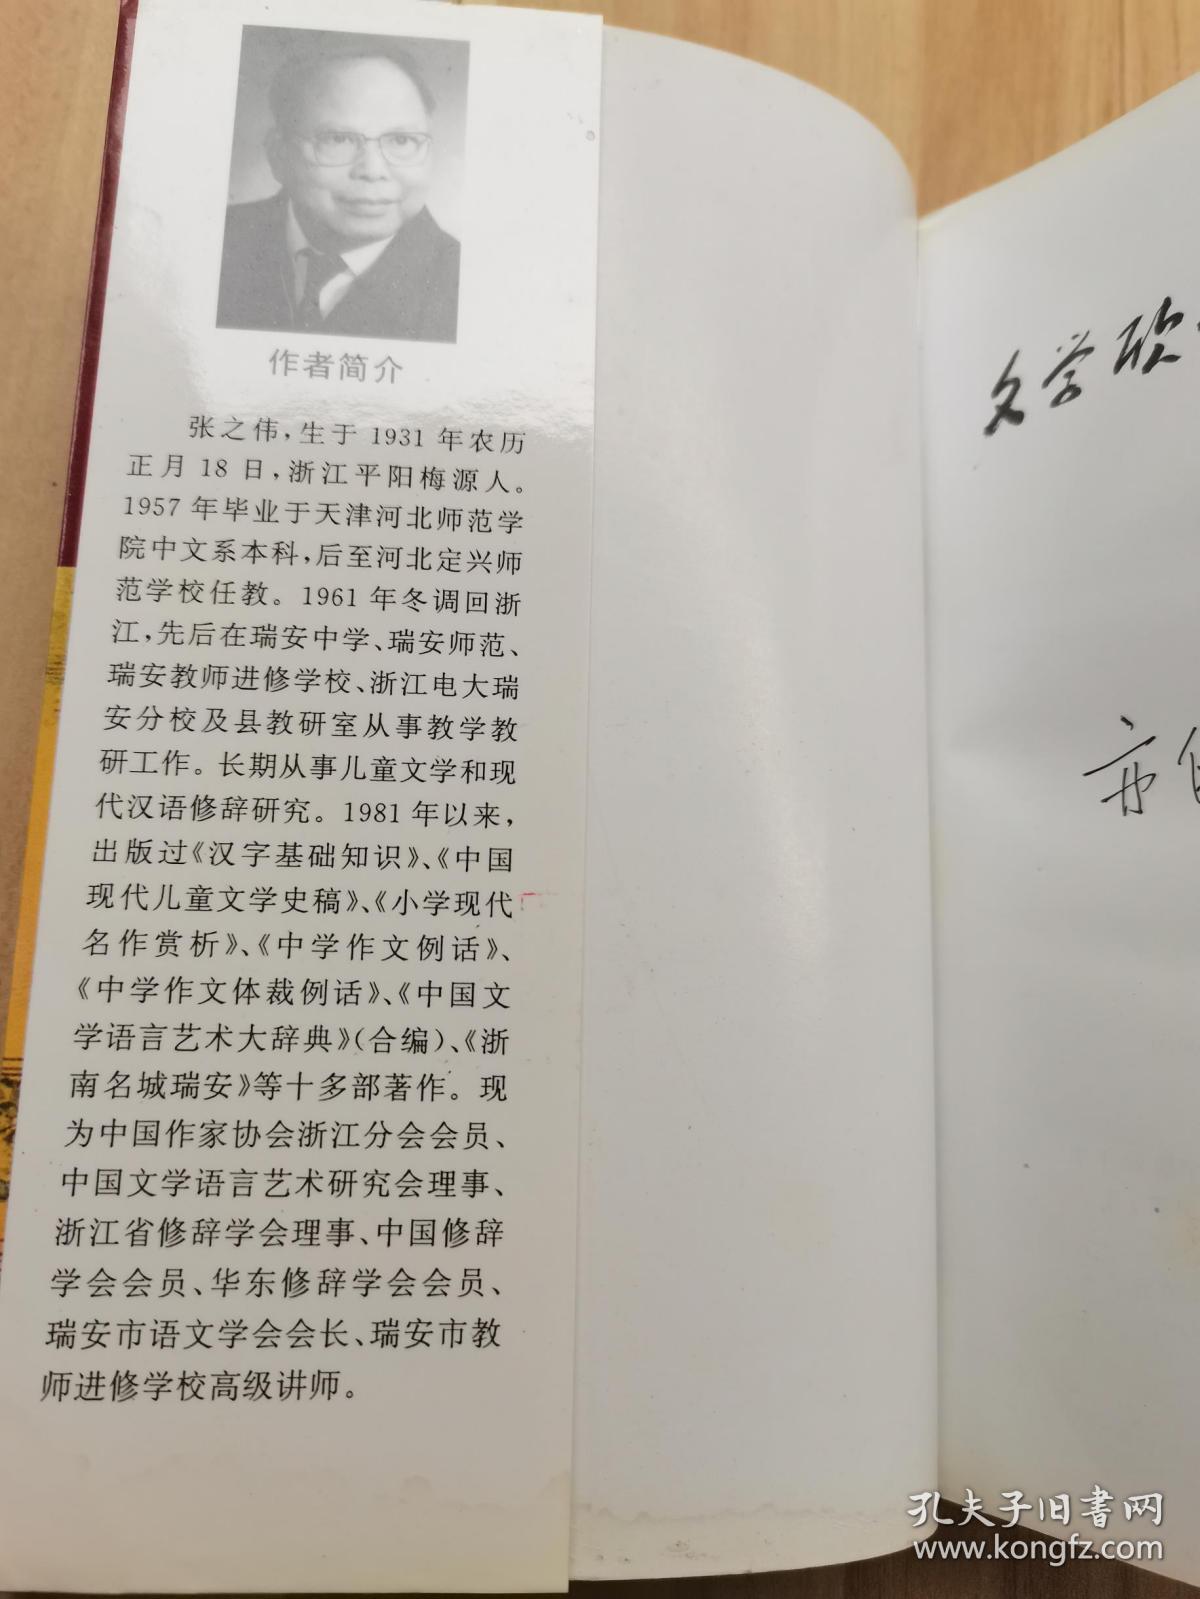 作者简介
张之伟,生于1931年农历
正月18日,浙江平阳梅源人。
1957年毕业于天津河北师范学
院中文系本科,后至河北定兴师
范学校任教。1961年冬调回浙
江,先后在瑞安中学、瑞安师范、
瑞安教师进修学校、浙江电大瑞
安分校及县教研室从事教学教
研工作。长期从事儿童文学和现
代汉语修辞研究。1981年以来,
出版过《汉字基础知识》、《中国
现代儿童文学史稿》、《小学现代
名作赏析》、《中学作文例话》、
《中学作文体裁例话》、《中国文
学语言艺术大辞典》(合编)、《浙
南名城瑞安》等十多部著作。现
为中国作家协会浙江分会会员、
中国文学语言艺术研究会理事、
浙江省修辞学会理事、中国修辞
学会会员、华东修辞学会会员、
瑞安市语文学会会长、瑞安市教
师进修学校高级讲师。
文学欣
孔夫子旧书网
www.kongfz.com